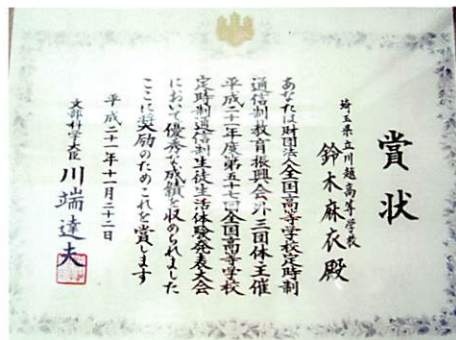 賞状
埼玉県立川越高等学校
鈴木麻衣殿
あなたは財団法人全国高等学校定時制
通信制教育振興会外三団体主催
平成二十一年度第五十七回全国高等学校
定時制通信制生徒生活体験発表大会
において優秀な成績を収められました
ここに奨励のためこれを賞します
平成二十一年十一月二十二日
文部科学大臣 川端達夫